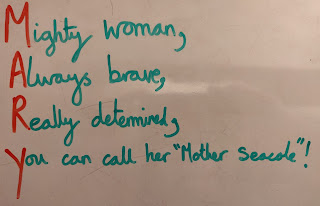 Mighty woman,
Always brave,
Really determined,
You can call her "Mother Seacole"!